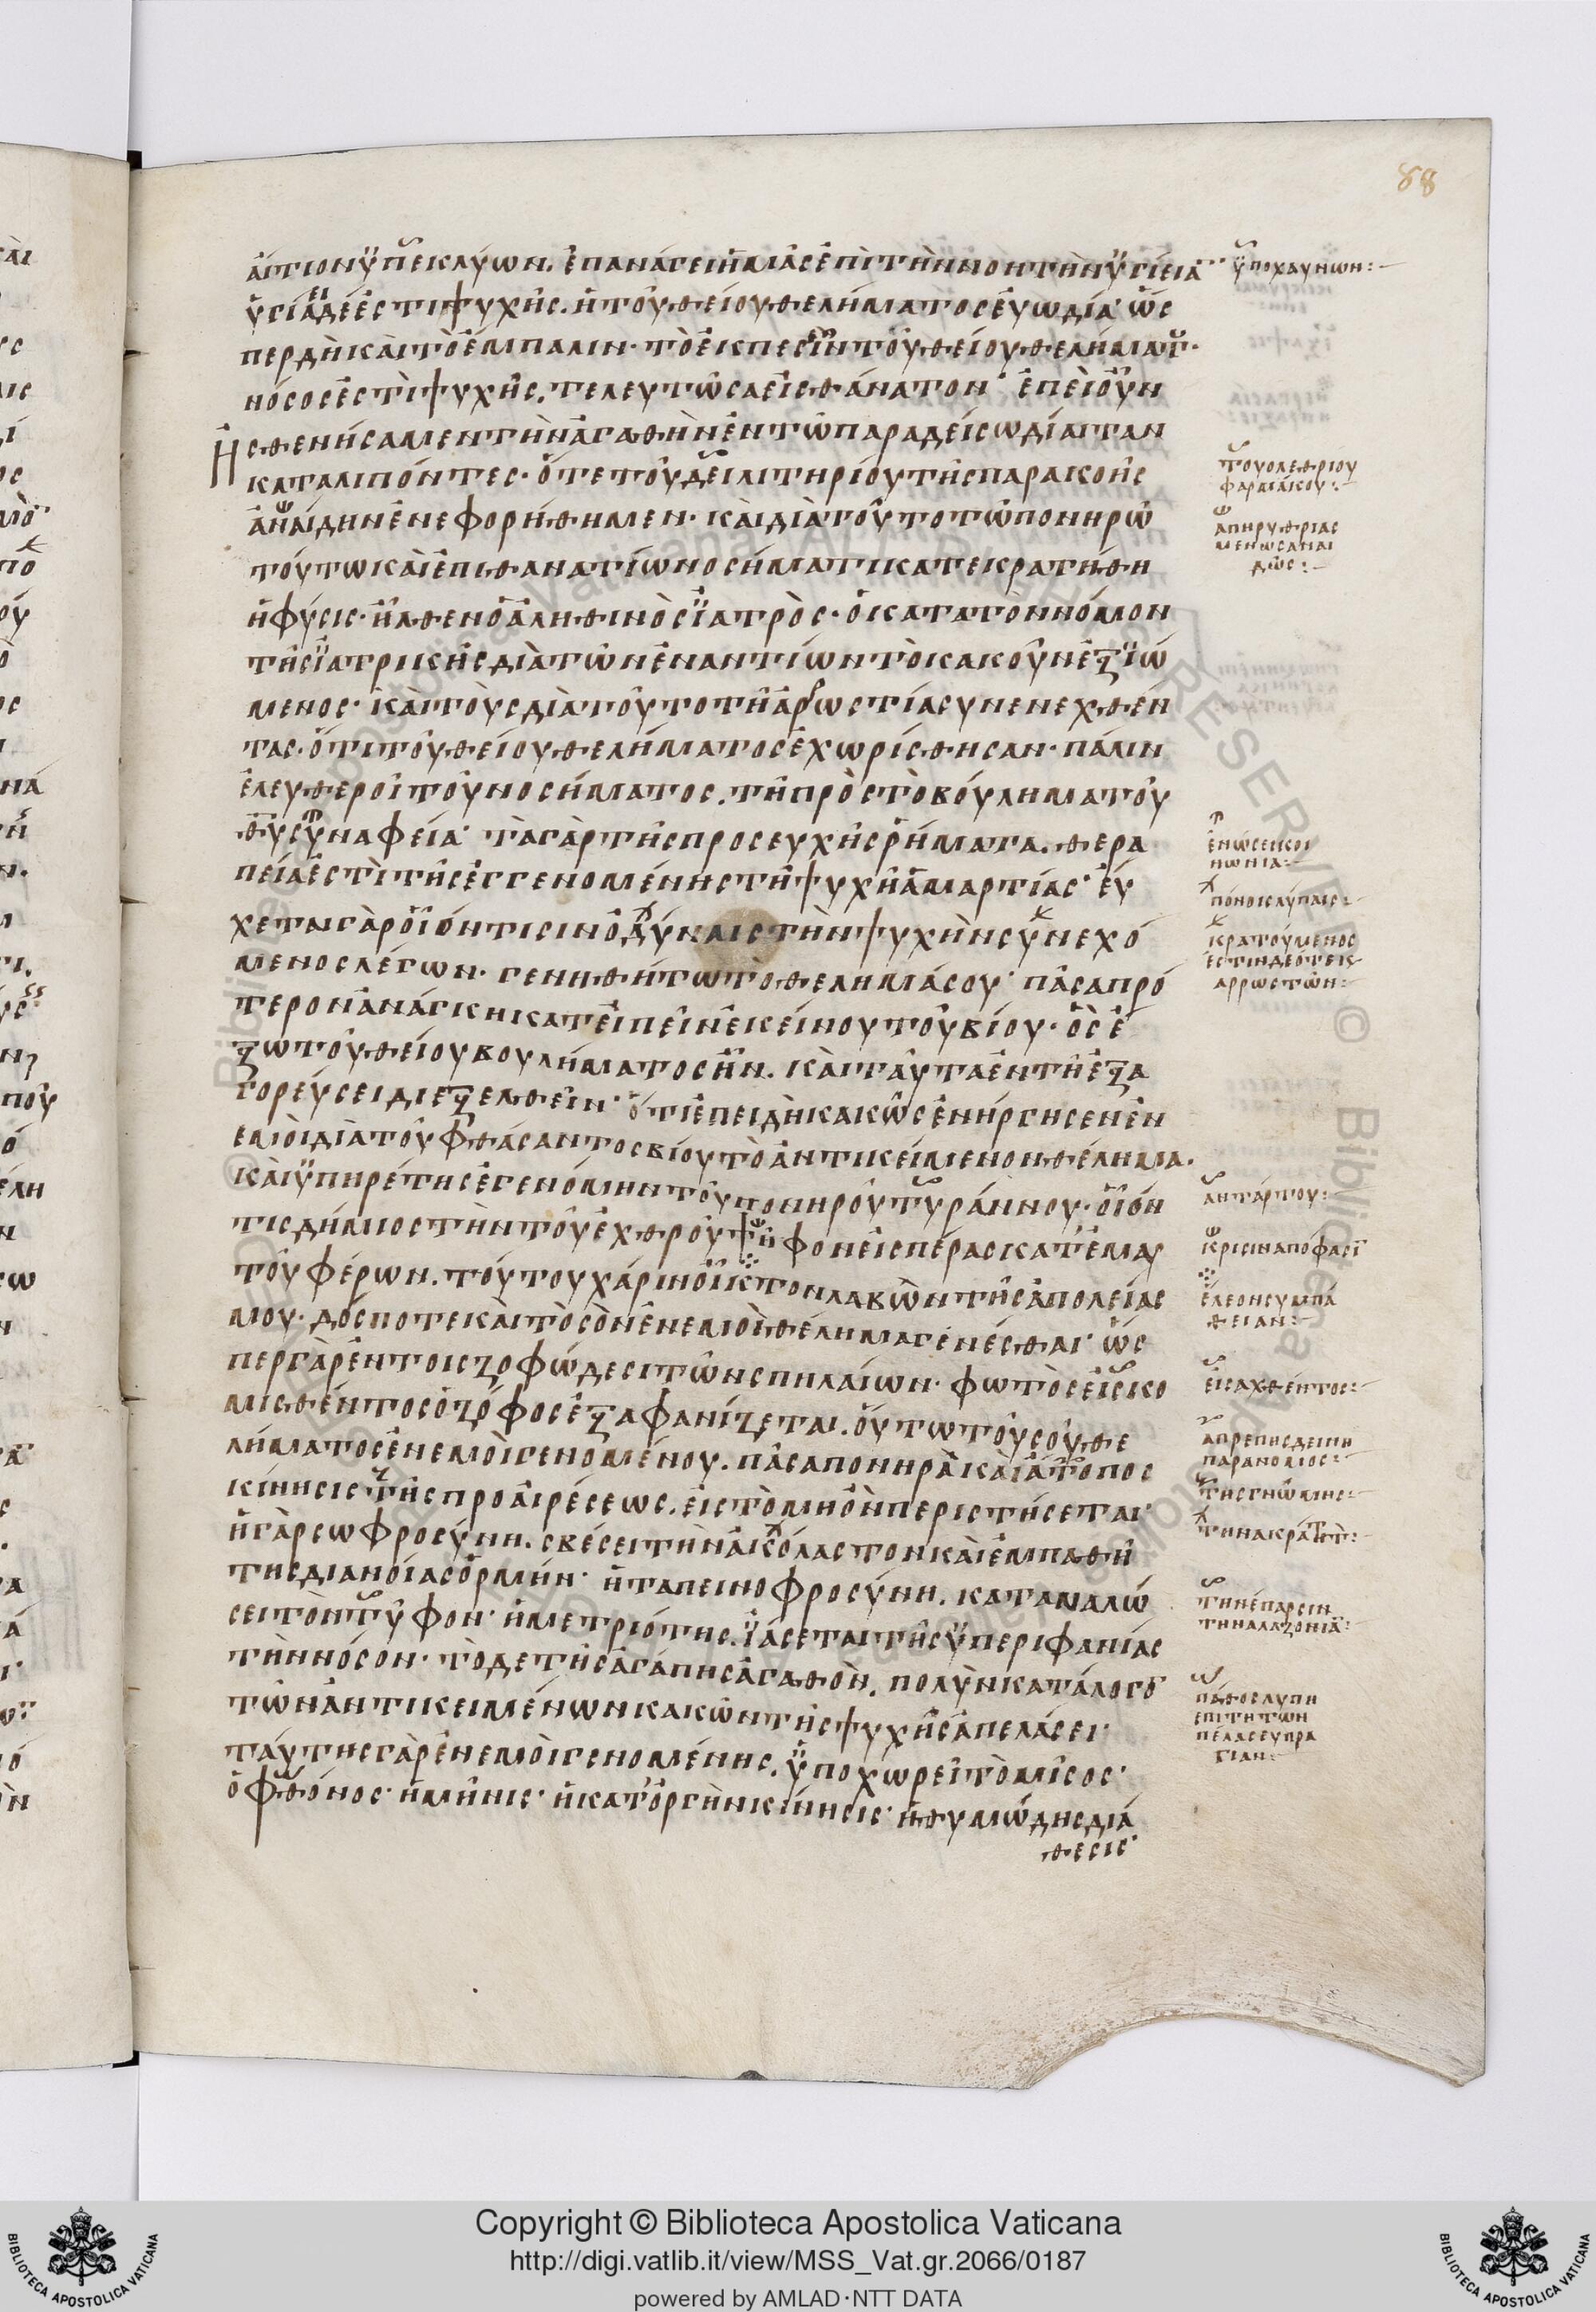 88
ἄιτιον ὑπεκλύων. ἐπανάγειν ἡμᾶς ἐπὶ τὴν νοητὴν ὑγίεια
ὑγίεια δέ ἐστι ψυχῆς. ἡ τοῦ θείου θελήματος ἐυωδία· ὥς
περ δὴ καὶ τὸ ἔμπαλιν· τὸ ἐκπεσεῖν τοῦ θείου θελήματ·
νόσος ἐστὶ ψυχῆς. τελευτῶσα εἰς θάνατον· ἐπεὶ οὖν
ἠσθενήσαμεν τὴν ἀγαθὴν ἐν τῶ παραδείσω δίαιταν
καταλιπόντες· ὅτε τοῦ δηλιτηρίου τῆς παρακοῆς
ἀναίδην ἐνεφορήθημεν· καὶ διὰ τοῦτο τῶ πονηρῶ
τούτω καὶ ἐπιθανατίω νοσήματι κατεκρατήθη
ἡ φύσις· ἦλθεν ὁ ἀληθινὸς ἰατρὸς· ὁ κατα τὸν νόμον
τῆς ἰατρικῆς διὰ τῶν ἐναντίων τὸ κακοῦν ἐξιώ
μενος· καὶ τοὺς διὰ τοῦτο τῆ ἀρρωστία συνενεχθέν
τας· ὅτι τοῦ θείου θελήματος ἐχωρίσθησαν· πάλιν
ἐλευθεροῖ τοῦ νοσήματος. τῆ πρὸς τὸ βούλημα τοῦ
θυ συναφεία· τὰ γὰρ τῆς προσευχῆς ῥήματα. θερα
πεία ἐστὶ τῆς ἐγγενομένης τῆ ψυχῆ ἁμαρτίας· ἐύ
χεται γὰρ οἱόν τισιν ὀδύναις τὴν ψυχὴν συνεχό
μενος λέγων· γενηθήτω τὸ θελημά σου· πᾶσα πρό
τερον ἀνάγκη κατειπεῖν ἐκείνου τοῦ βίου· ὃς ἔ
ξω τοῦ θείου βουλήματος ἦν. καὶ ταῦτα ἐν τῆ ἐξα
γορεύσει διεξελθεῖν· ὅτι ἐπειδὴ κακῶς ἐνήργησεν ἐν
ἐμοὶ διὰ τοῦ φθάσαντος βίου τὸ ἀντικείμενον θέλημα.
καὶ ὑπηρέτης ἐγενόμην τοῦ πονηροῦ τυράννου· οἱόν
τις δήμιος τὴν τοῦ ἐχθροῦ ψῆφον εἰς πέρας κατ' ἐμαυ
τοῦ φέρων. τούτου χάριν οἶκτον λαβὼν τῆς ἀπολείας
μου· δός ποτε καὶ τὸ σὸν ἐν ἐμοὶ θέλημα γενέσθαι· ὥς
περ γὰρ ἐν τοις ζοφώδεσι τῶν σπηλαίων· φωτὸς εἰσκο
μισθέντος ὁ ζόφος ἐξαφανίζεται. οὕτω τοῦ σοῦ θε
λήματος ἐν ἐμοὶ γενομένου. πᾶσα πονηρὰ καὶ ἄτοπος
κίνησις τῆς προαιρέσεως. εἰς τὸ μὴ ὂν περιστήσεται·
ἡ γὰρ σωφροσύνη. σβέσει τὴν ἀκόλαστον καὶ ἐμπαθῆ
τῆς διανοίας ὁρμήν· ἡ ταπεινοφροσύνη. καταναλώ
σει τὸν τῦφον· ἡ μετριότης. ἰάσεται τῆς ὑπεριφανίας
τὴν νόσον· τὸ δε τῆς ἀγάπης ἀγαθὸν. πολὺν κατάλογο
τῶν ἀντικειμένων κακῶν τῆς ψυχῆς ἀπελάσει·
ταύτης γὰρ ἐν ἐμοὶ γενομένης. ὑποχωρεῖ τὸ μῖσος·
ὁ φθόνος· ἡ μῆνις· ἡ κατ' ὀργὴν κίνησις· ἡ θυμώδης διά
θεσις·
ὑποχαυνων:
του ολεθριου
φαρμάκου:
ἀπηρυθρια
μενως αναι
δῶς:
ἑνώσει κοι
νωνια:
πόνοις λύπαις:
κρατούμενος
ἐστιν δε ότε κ
αρρωστῶν:
ἀντάρτου:
κρίσιν αποφασι
ἔλεον συμπά
θειαν:
εἰσαχθέντος:
απρεπης δεινη
παρανομος:
τῆς γνώμης:
την ακρατ
την έπαρσιν
την αλαζονια:
πάθος λυπη
επι τη των
πέλας ευπρα
γίαν:
Copyright © Biblioteca Apostolica Vaticana
http://digi.vatlib.it/view/MSS_Vat.gr.2066/0187
powered by AMLAD·NTT DATA
BIBLIOTECA APOSTOLICA VATICANA
BIBLIOTECA APOSTOLICA VATICANA